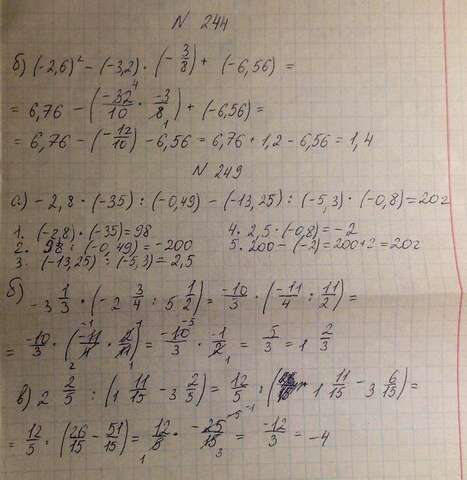 N 244
б) (-2,6)² - (-3,2) · (- 3/8) + (-6,56) =
= 6,76 - (-32/10 · -3/8) + (-6,56) =
= 6,76 - (-12/10) - 6,56 = 6,76 + 1,2 - 6,56 = 1,4
N 249
а) - 2,8 · (-35) : (-0,49) - (-13,25) : (-5,3) · (-0,8) = 202
1. (-2,8) · (-35) = 98 4. 2,5 · (-0,8) = -2
2. 98 : (-0,49) = -200 5. 200 - (-2) = 200+2 = 202
3. (-13,25) : (-5,3) = 2,5
б) -3 1/3 · (-2 3/4 : 5 1/2) = -10/3 · (-11/4 : 11/2) =
= -10/3 · (-11/4 · 2/11) = -10/3 · -1/2 = 5/3 = 1 2/3
в) 2 2/5 : (1 11/15 - 3 2/5) = 12/5 : (1 11/15 - 3 6/15) =
= 12/5 : (26/15 - 51/15) = 12/5 · -25/15 = -12/3 = -4